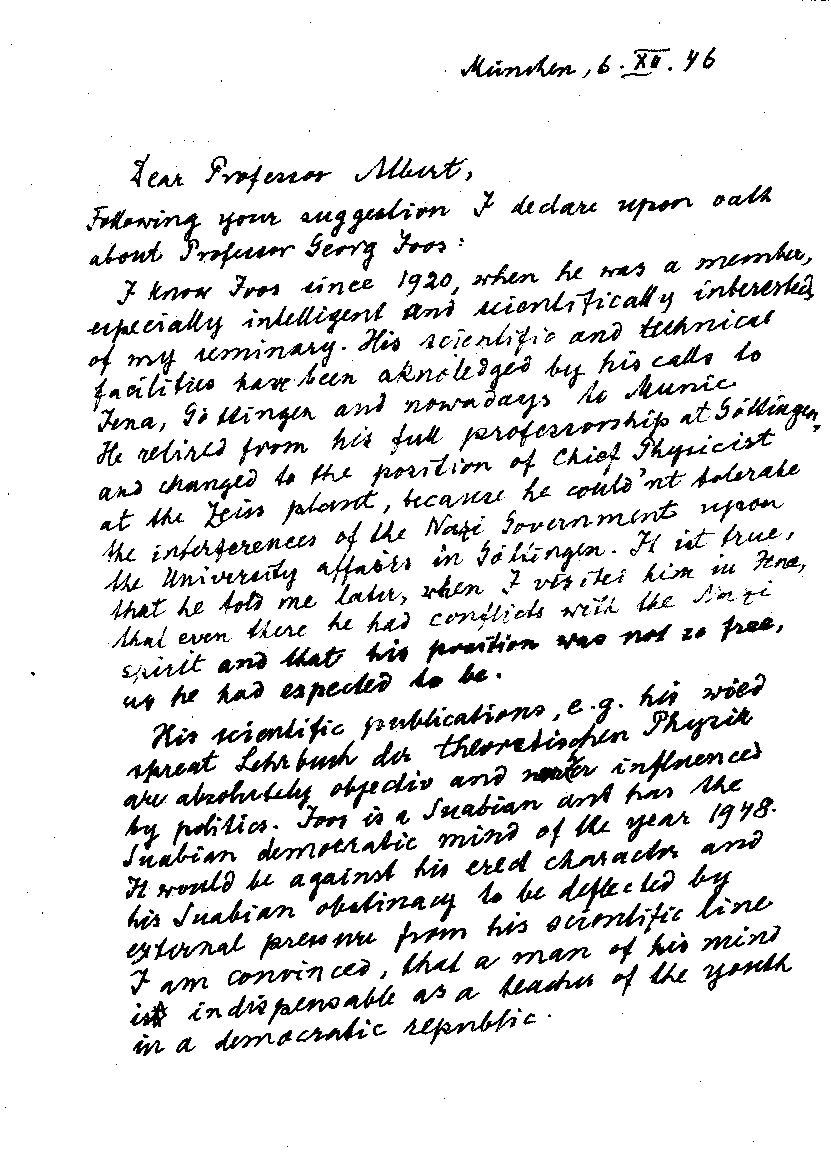 München, 6. XII. 46
Dear Professor Albert,
Following your suggestion I declare upon oath
about Professor Georg Joos:
I know Joos since 1920, when he was a member,
especially intelligent and scientifically interested,
of my seminary. His scientific and technical
facilities have been aknoledged by his calls to
Jena, Göttingen and nowadays to Munic
He retired from his full professorship at Göttingen,
and changed to the position of Chief Physicist
at the Zeiss plant, because he could'nt tolerate
the interferences of the Nazi Government upon
the University affairs in Göttingen. It ist true,
that he told me later, when I visited him in Jena,
that even there he had conflicts with the Nazi
spirit and that his position was not so free,
as he had expected to be.
His scientific publications, e.g. his wied
spreat Lehrbuch der theoretischen Physik
are absolutely objectiv and never influenced
by politics. Joos is a Suabian and has the
Suabian democratic mind of the year 1948.
It would be against his ered character and
his Suabian obstinacy to be deflected by
external pressure from his scientific line
I am convinced, that a man of his mind
is indispensable as a teacher of the youth
in a democratic republic.